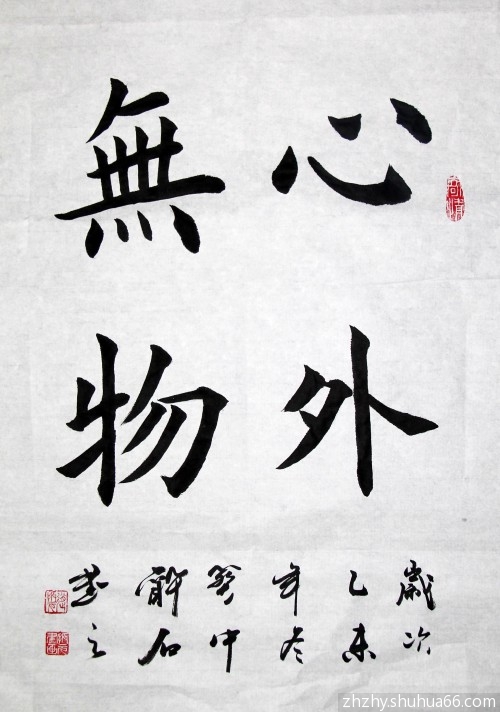 心外
無物
歲次
乙未
年冬
中
石
之
zhzhyshuhua66.com